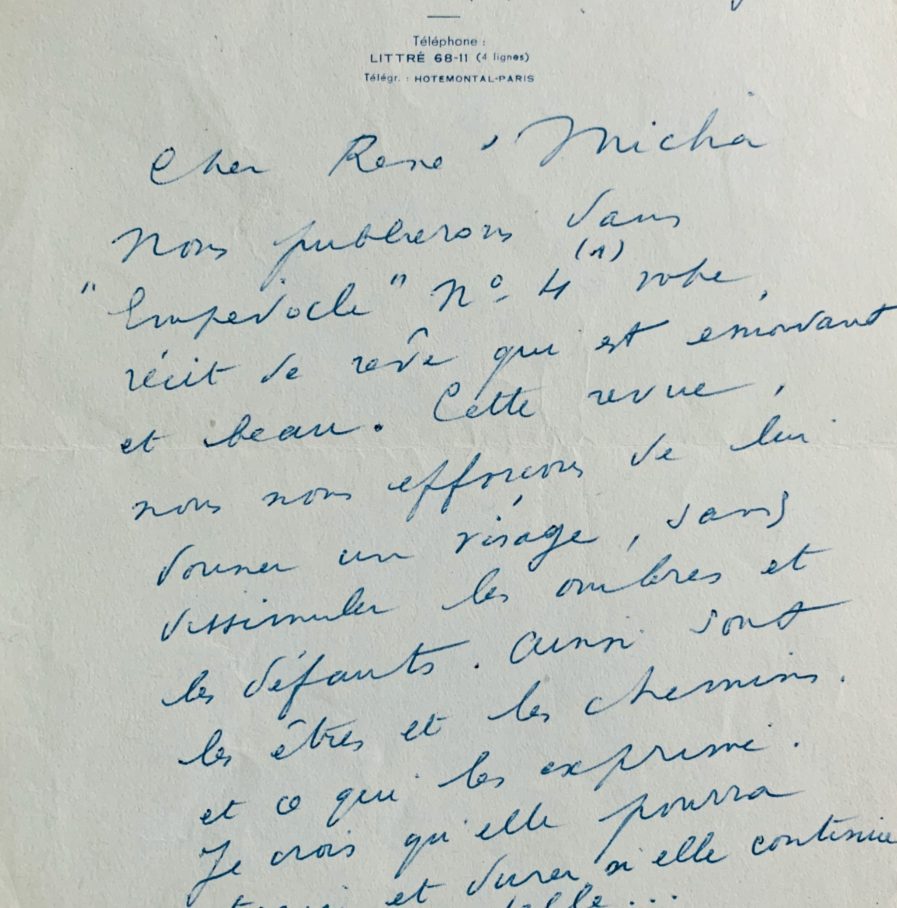 Téléphone :
LITTRÉ 68-11 (4 lignes)
Télégr. : HOTEMONTAL-PARIS
Cher René Micha
Nous publierons dans
"Empédocle" N° 4 (1) votre
récit de rêve qui est émouvant
et beau. Cette revue,
nous nous efforçons de lui
donner un visage, sans
dissimuler les ombres et
les défauts. Ainsi sont
les êtres et les chemins.
et ce qui les exprime.
Je crois qu'elle pourra
et durer si elle continue